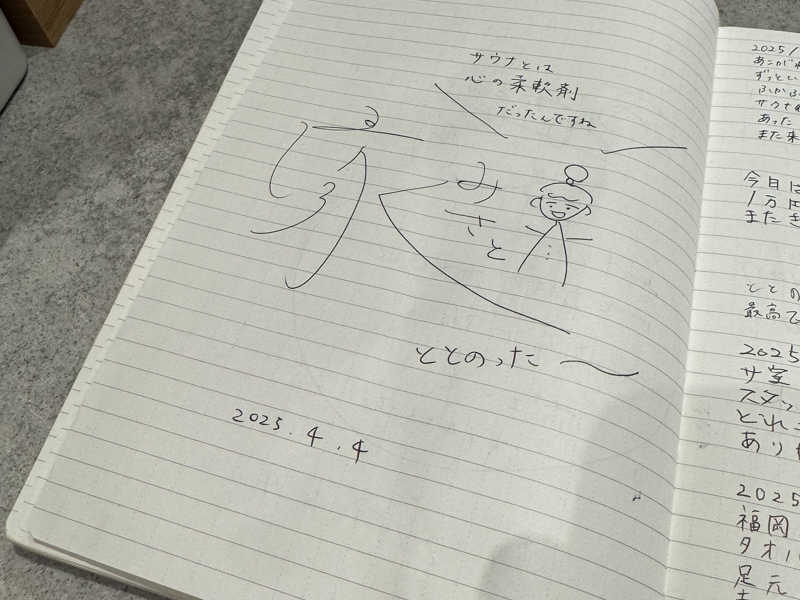 サウナとは
心の柔軟剤
だったんですね
みさと
ととのった
2025.4.4
2025/
ずっとい
サウナ
あった
また来
今日は
1万円
またき
ととの
最高で
2025
サ室
スタッ
どれも
あり
2025
福岡
タオ
足元